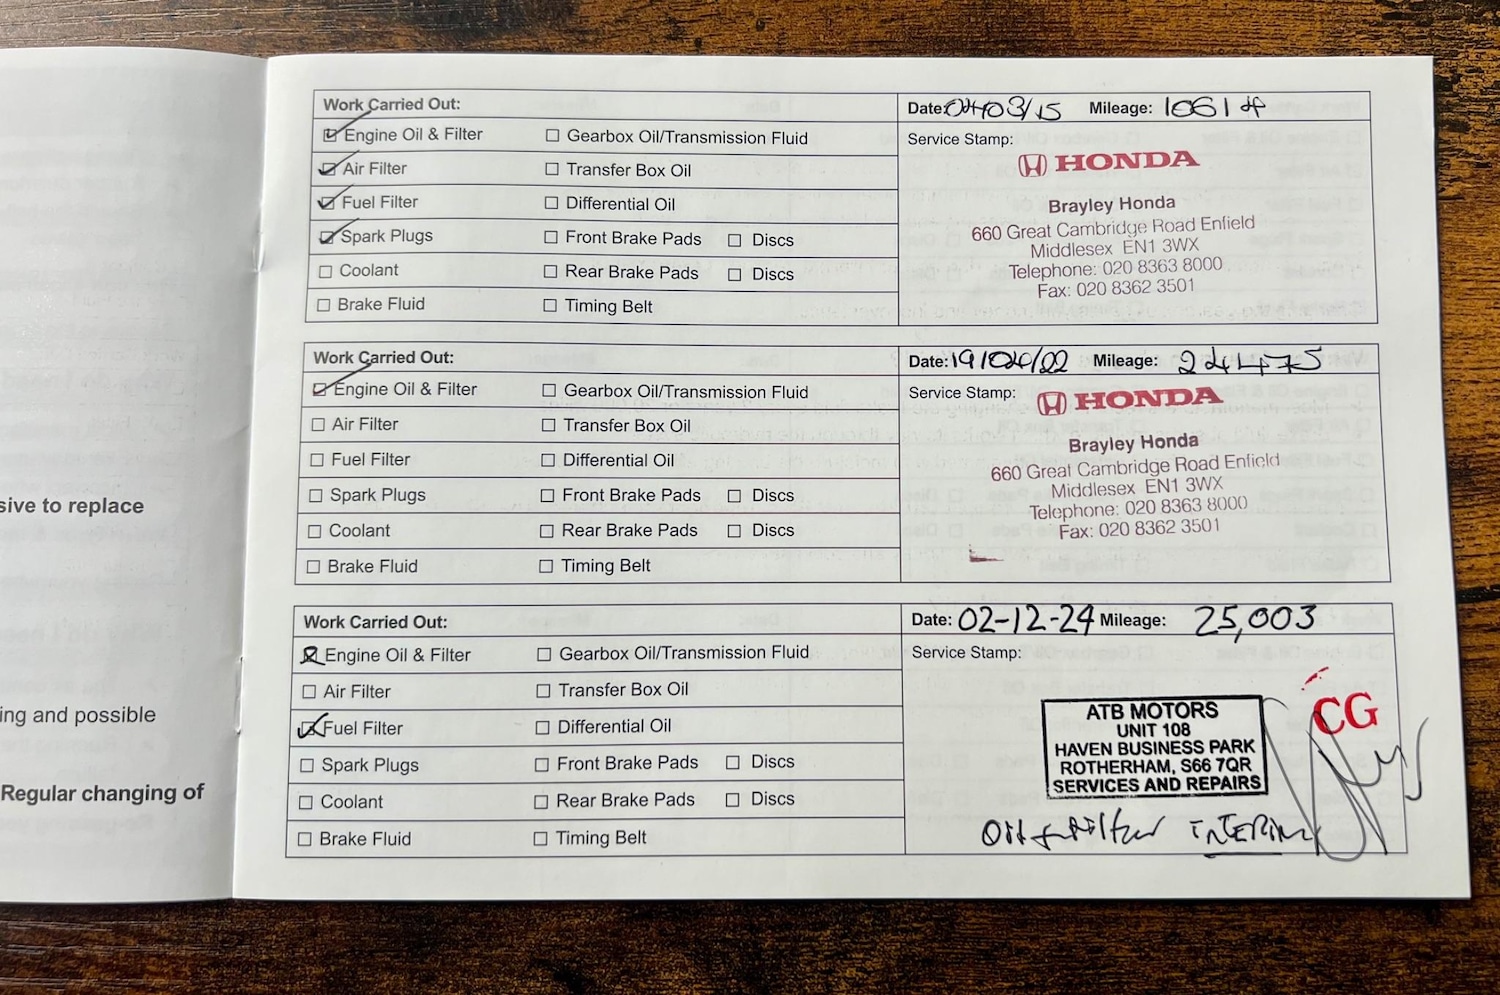 sive to replace
ing and possible
Regular changing of
Work Carried Out:
Engine Oil & Filter
Gearbox Oil/Transmission Fluid
Air Filter
Transfer Box Oil
Fuel Filter
Differential Oil
Spark Plugs
Front Brake Pads Discs
Coolant
Rear Brake Pads Discs
Brake Fluid
Timing Belt
Date: 04/03/15 Mileage: 10614
Service Stamp:
HONDA
Brayley Honda
660 Great Cambridge Road Enfield
Middlesex EN1 3WX
Telephone: 020 8363 8000
Fax: 020 8362 3501
Work Carried Out:
Engine Oil & Filter
Gearbox Oil/Transmission Fluid
Air Filter
Transfer Box Oil
Fuel Filter
Differential Oil
Spark Plugs
Front Brake Pads Discs
Coolant
Rear Brake Pads Discs
Brake Fluid
Timing Belt
Date: 19/04/22 Mileage: 24475
Service Stamp:
HONDA
Brayley Honda
660 Great Cambridge Road Enfield
Middlesex EN1 3WX
Telephone: 020 8363 8000
Fax: 020 8362 3501
Work Carried Out:
Engine Oil & Filter
Gearbox Oil/Transmission Fluid
Air Filter
Transfer Box Oil
Fuel Filter
Differential Oil
Spark Plugs
Front Brake Pads Discs
Coolant
Rear Brake Pads Discs
Brake Fluid
Timing Belt
Date: 02-12-24 Mileage: 25,003
Service Stamp:
CG
ATB MOTORS
UNIT 108
HAVEN BUSINESS PARK
ROTHERHAM, S66 7QR
SERVICES AND REPAIRS
Oil + Filter INTERIM